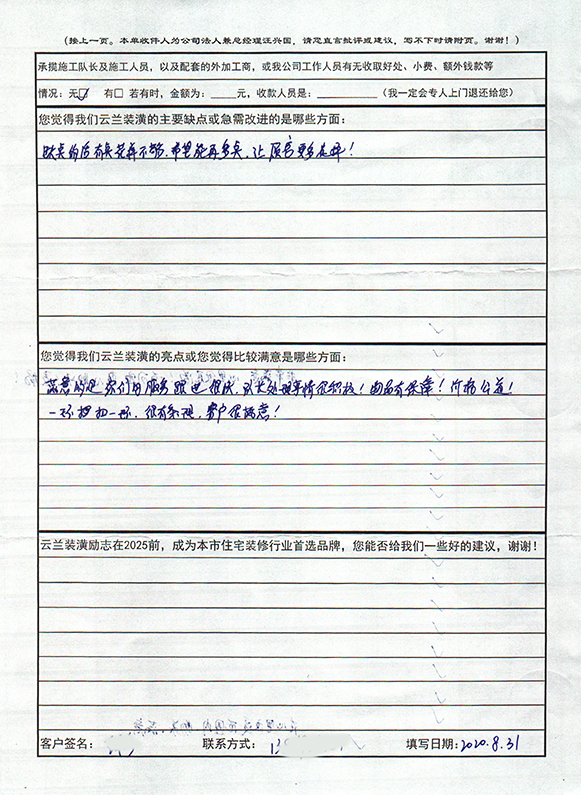 (接上一页。本单收件人为公司法人兼总经理汪兴国，请您直言批评或建议，写不下时请附页。谢谢！)
承揽施工队长及施工人员，以及配套的外加工商，或我公司工作人员有无收取好处、小费、额外钱款等
情况：无☑ 有□ 若有时，金额为：____元，收款人是：__________（我一定会专人上门退还给您）
您觉得我们云兰装潢的主要缺点或急需改进的是哪些方面：
缺点的话有点花样不够，希望能再多点，让顾客更多选择！
您觉得我们云兰装潢的亮点或您觉得比较满意是哪些方面：
满意的是你们的服务跟进很快，以及处理事情很积极！商品有保障！价格公道！
一环扣一环，很有条理，客户很满意！
云兰装潢励志在2025前，成为本市住宅装修行业首选品牌，您能否给我们一些好的建议，谢谢！
客户签名： 联系方式： 填写日期：2020.8.31